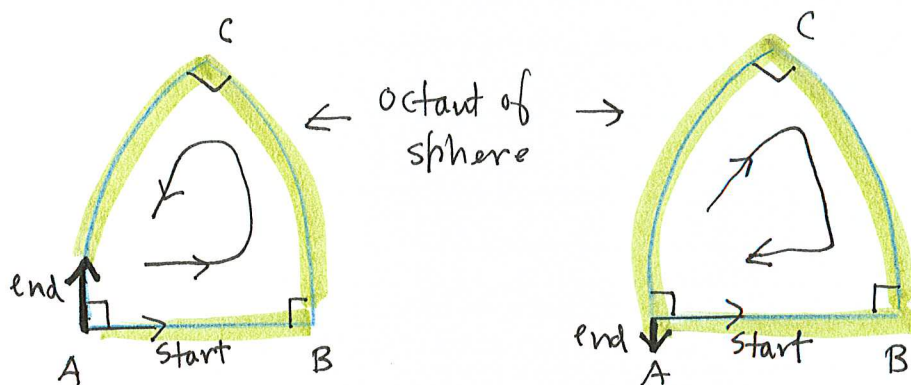 C
C
← octant of →
sphere
end
start
A
B
end
start
A
B